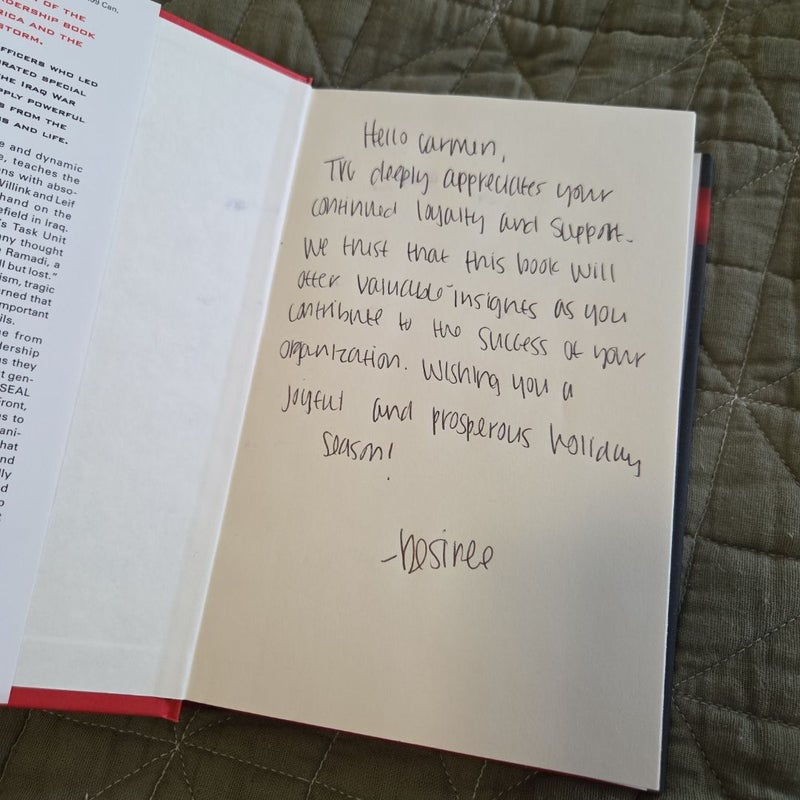 09 Can.
OF THE
DERSHIP BOOK
RICA AND THE
STORM.
FFICERS WHO LED
RATED SPECIAL
HE IRAQ WAR
PPLY POWERFUL
S FROM THE
S AND LIFE.
e and dynamic
e, teaches the
ns with abso-
Willink and Leif
hand on the
efield in Iraq.
's Task Unit
any thought
Ramadi, a
ll but lost."
ism, tragic
rned that
mportant
ils.
e from
dership
s they
t gen-
SEAL
Front,
s to
ani-
hat
nd
lly
d
Hello Carmen,
TVG deeply appreciates your
continued loyalty and support.
We trust that this book will
offer valuable insights as you
contribute to the success of your
organization. Wishing you a
joyful and prosperous holiday
season!
-Desiree